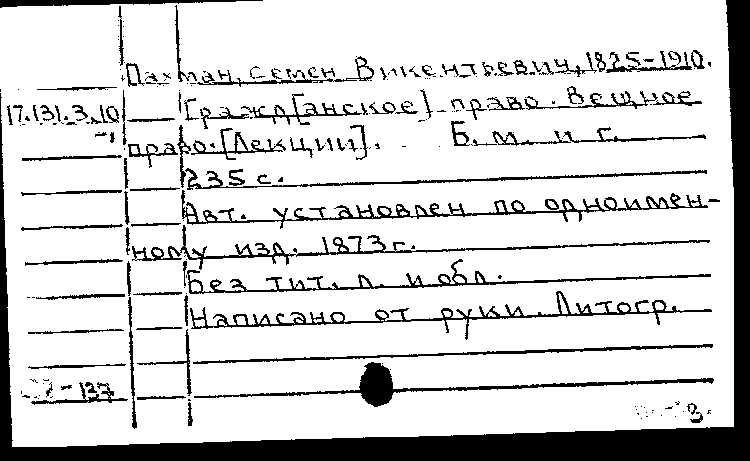 Пахман, Семен Викентьевич, 1825-1910.
17.131.3.10 Гражд[анское] право. Вещное
-1 право. [Лекции]. Б. м. и г.
235 с.
Авт. установлен по одноимен-
ному изд. 1873 г.
Без тит. л. и обл.
Написано от руки. Литогр.
-137